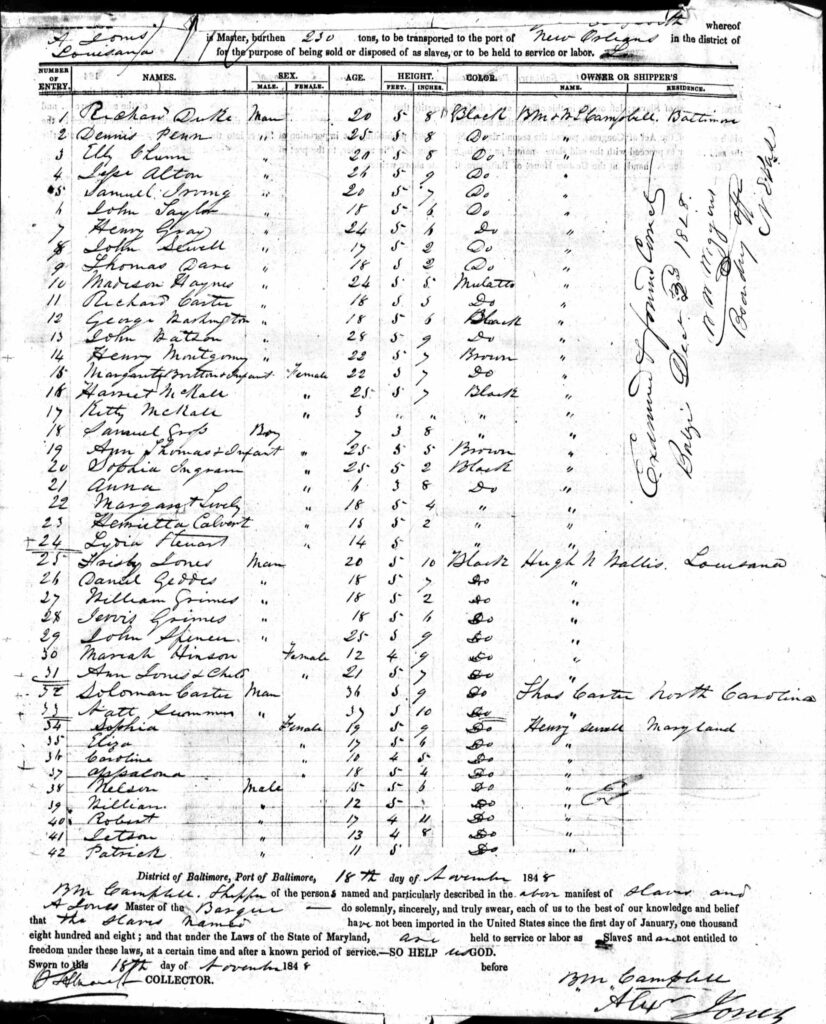 whereof
A Jones is Master, burthen 230 tons, to be transported to the port of New Orleans in the district of
Louisiana for the purpose of being sold or disposed of as slaves, or to be held to service or labor.
NUMBER OF ENTRY. NAMES. SEX. MALE. FEMALE. AGE. HEIGHT. FEET. INCHES. COLOR. OWNER OR SHIPPER'S NAME. RESIDENCE.
1 Richard Duke Man 20 5 8 Black BM & WL Campbell, Baltimore
2 Dennis Penn " 25 5 8 Do "
3 Elly Chunn " 20 5 8 Do "
4 Alton " 26 5 9 Do "
5 Samuel Irving " 20 5 7 Do "
6 John Taylor " 18 5 6 Do "
7 Henry Gray " 24 5 6 Do "
8 John Sewell " 17 5 2 Do "
9 Thomas Dare " 18 5 2 Do "
10 Madison Haynes " 24 5 5 Mulatto "
11 Richard Carter " 18 5 5 Do "
12 George Washington " 18 5 6 Black "
13 John Watson " 28 5 9 Do "
14 Henry Montgomy " 22 5 7 Brown "
15 Margaret Britton & Infant Female 22 5 7 Do "
16 Harriet McKall " 25 5 7 Black "
17 Kitty McKall " 3 " " " "
18 Samuel Gross Boy 7 3 8 " "
19 Ann Thomas & Infant " 25 5 5 Brown "
20 Sophia Ingram " 25 5 2 Black "
21 Anna " 6 3 8 Do "
22 Margaret Lively " 18 5 4 " "
23 Henrietta Calvert " 15 5 2 " "
24 Lydia Steuart " 14 5 " "
25 Frisby Jones Man 20 5 10 Black Hugh N Wallis. Louisiana
26 Daniel Geddes " 18 5 7 Do "
27 William Grimes " 18 5 2 Do "
28 Jervis Grimes " 18 5 6 Do "
29 John Spencer " 25 5 9 Do "
30 Mariah Hinson Female 12 4 9 Do "
31 Ann Jones & Child " 21 5 7 Do "
32 Soloman Carter Man 36 5 9 Do Thos Carter North Carolina
33 Natt " 37 5 10 Do "
34 Sophia Female 19 5 9 Do Henry Sewell Maryland
35 Eliza " 17 5 6 Do "
36 Caroline " 10 4 5 Do "
37 Appalona " 18 5 4 Do "
38 Nelson Male 15 5 6 Do "
39 William " 12 5 Do "
40 Robert " 17 4 11 Do "
41 Jetson " 13 4 8 Do "
42 Patrick " 11 5 Do "
Examined & found Correct
Balize Decr 1848.
Boarding Offr
District of Baltimore, Port of Baltimore, 18th day of November 1848
BM Campbell. Shipper of the persons named and particularly described in the above manifest of slaves and
A Jones Master of the Barque — do solemnly, sincerely, and truly swear, each of us to the best of our knowledge and belief
that the slaves named have not been imported in the United States since the first of January, one thousand
eight hundred and eight; and that under the Laws of the State of Maryland, are held to service or labor as Slaves and are not entitled to
freedom under these laws, at a certain time and after a known period of service.—SO HELP us GOD.
Sworn to this 18th day of November 1848 before
COLLECTOR. BM Campbell
Alexr Jones